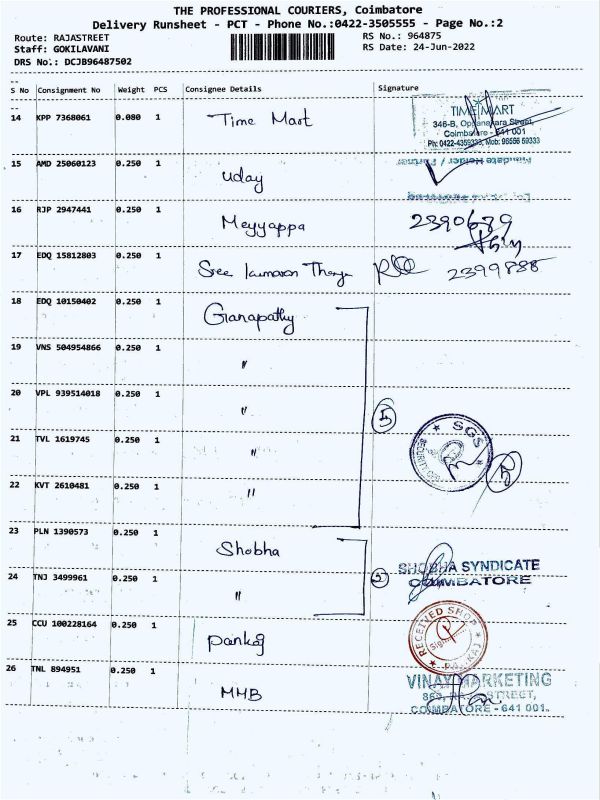 THE PROFESSIONAL COURIERS, Coimbatore
Delivery Runsheet - PCT - Phone No.:0422-3505555 - Page No.:2
Route: RAJASTREET
RS No.: 964875
Staff: GOKILAVANI
RS Date: 24-Jun-2022
DRS No.: DCJB96487502
S No Consignment No Weight PCS Consignee Details Signature
14 KPP 7368061 0.080 1 Time Mart
TIME MART
346-B, Oppanakara Street,
Coimbatore - 641 001
Ph: 0422-4359333, Mob: 96556 59333
15 AMD 25060123 0.250 1 Uday
16 RJP 2947441 0.250 1 Meyyappa 2390689
17 EDQ 15812803 0.250 1 Sree 2399888
18 EDQ 10150402 0.250 1 Ganapathy
19 VNS 504954866 0.250 1 "
20 VPL 939514018 0.250 1 "
5
21 TVL 1619745 0.250 1 "
SGS
SECURITY
22 KVT 2610481 0.250 1 "
23 PLN 1390573 0.250 1 Shobha
SHOBHA SYNDICATE
COIMBATORE
24 TNJ 3499961 0.250 1 "
25 CCU 100228164 0.250 1 Pankaj
RECEIVED SHOP
26 TNL 894951 0.250 1 MHB
VINAY MARKETING
STREET,
COIMBATORE - 641 001.